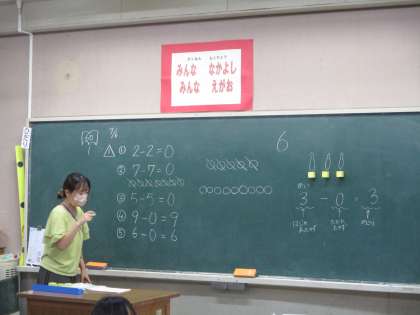 みんな なかよし
みんな えがお
7/6
6
① 2-2=0
② 7-7=0
③ 5-5=0
④ 9-0=9
⑤ 6-0=6
3 - 0 = 3